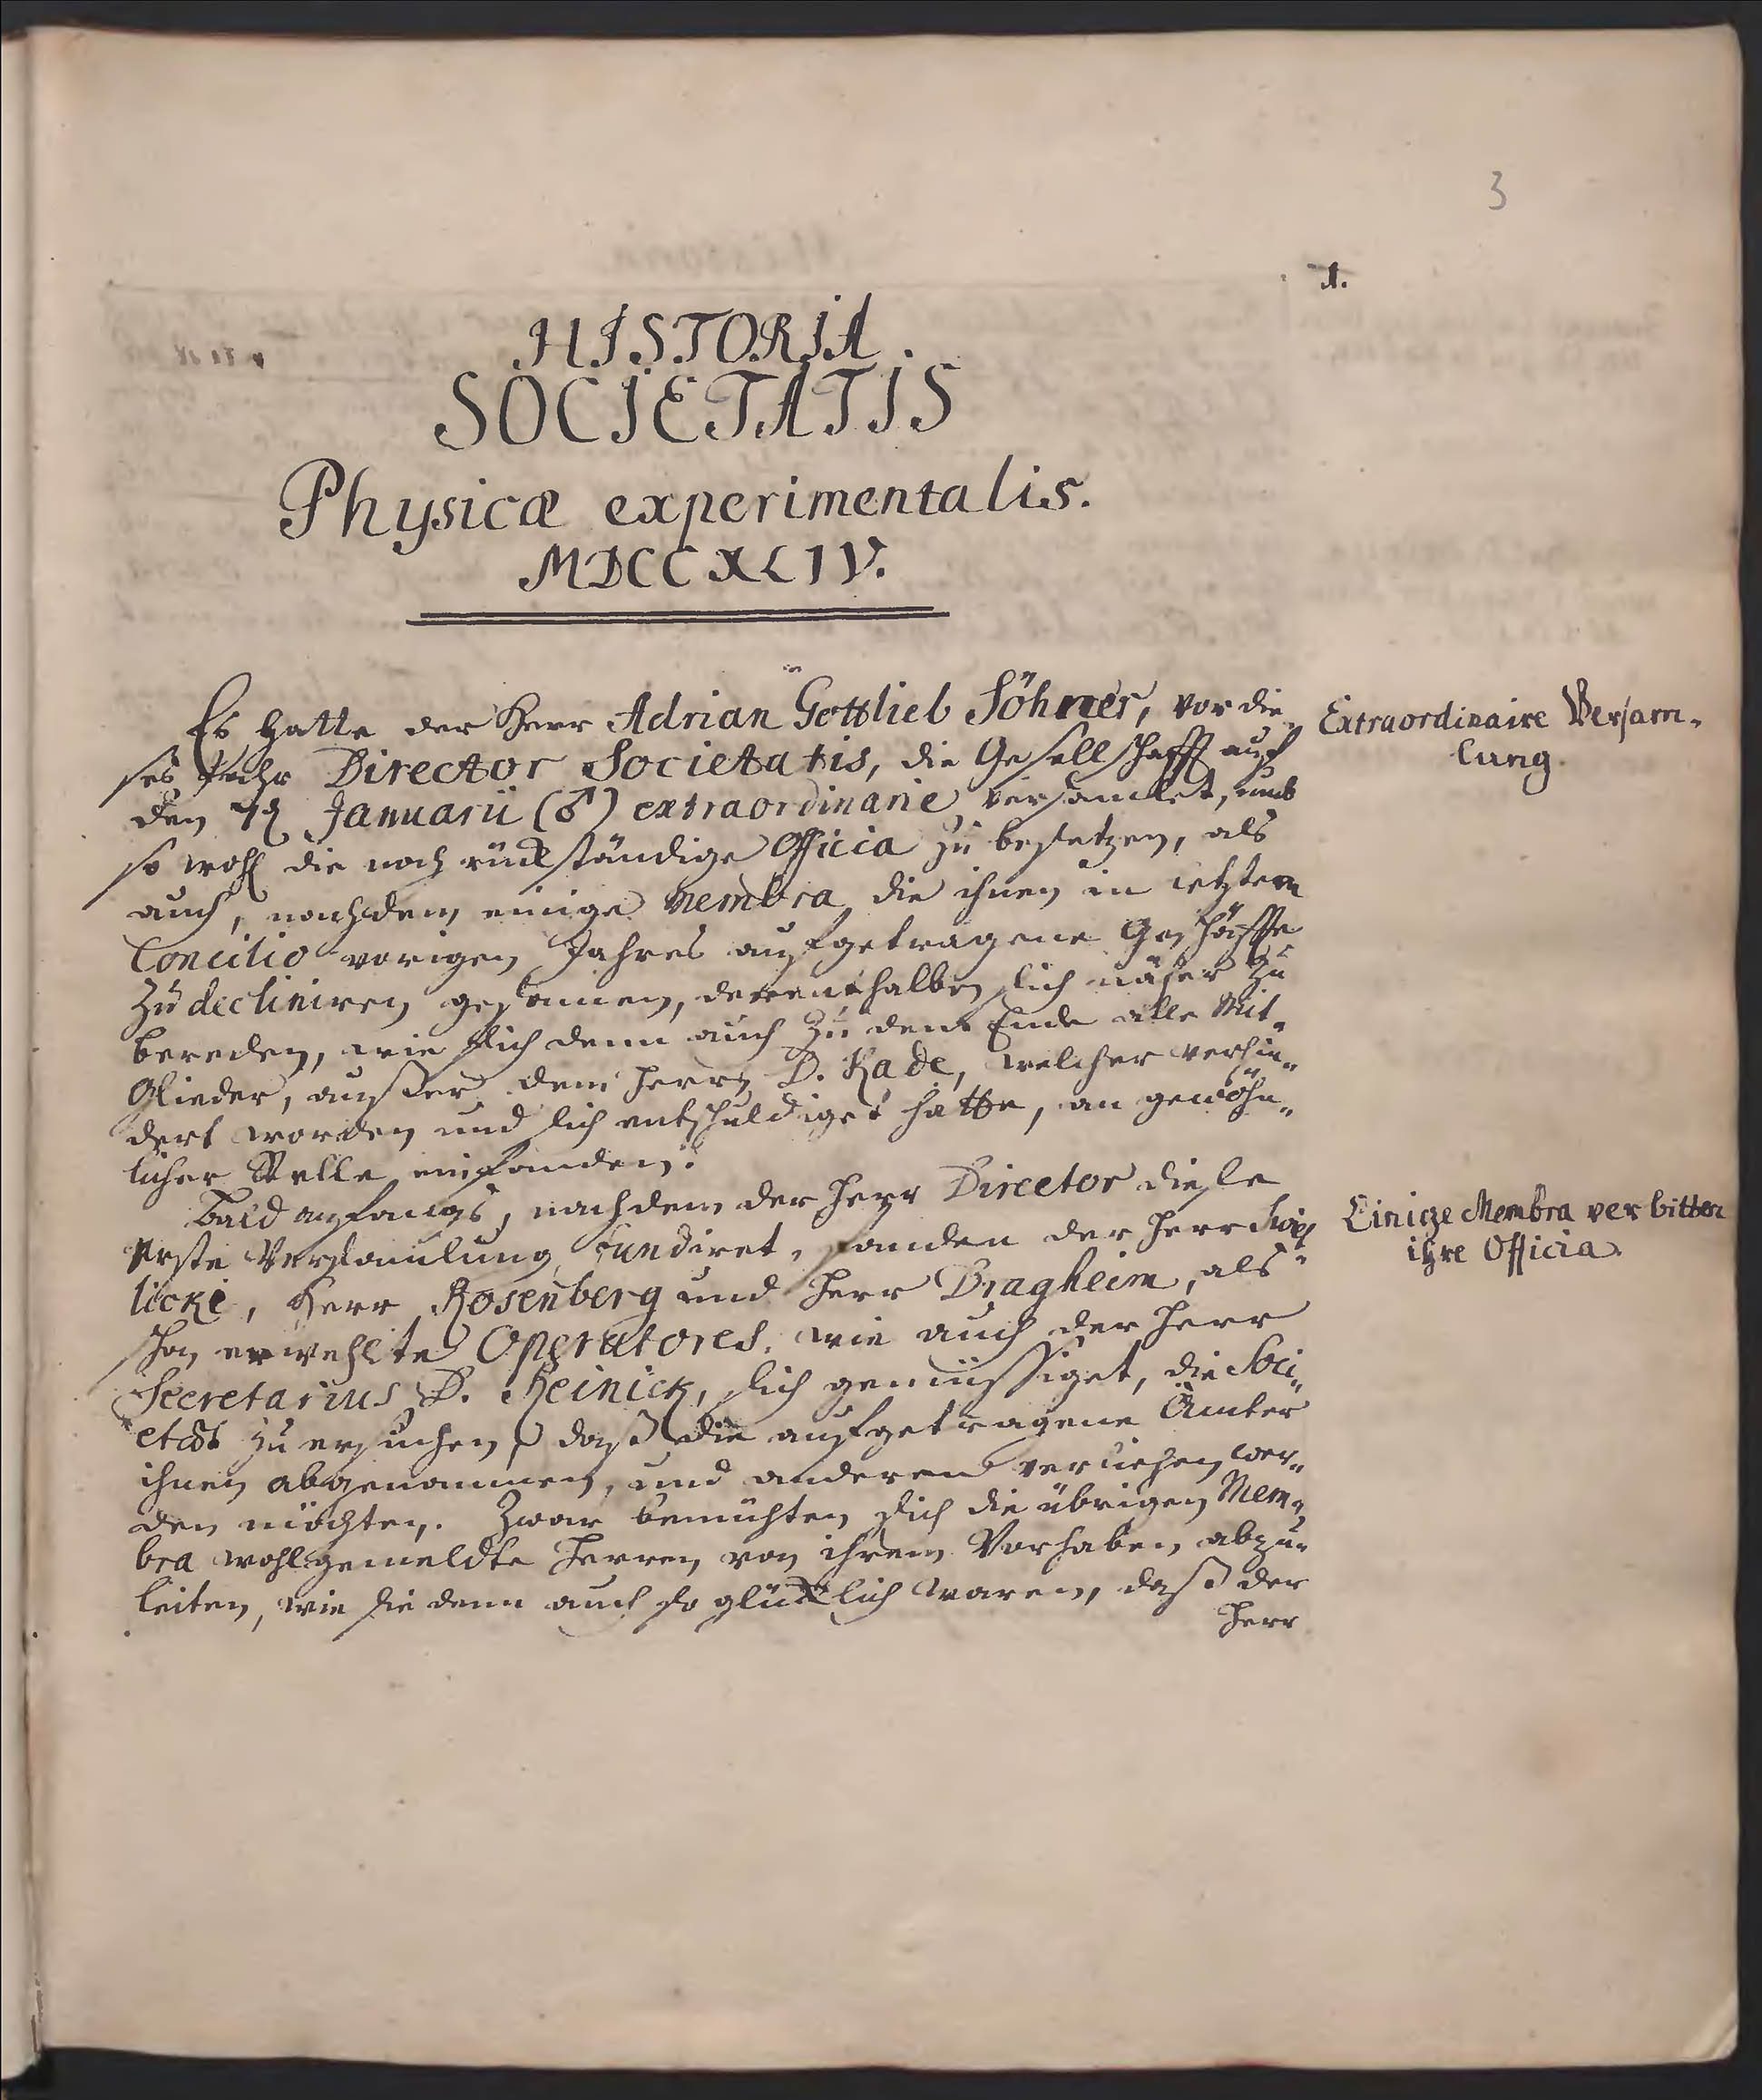 3
1.
HISTORIA
SOCIETATIS
Physicæ experimentalis.
MDCCXLIV.
Es hatte der Herr Adrian Gottlieb Söhner, vor die-
ses Jahr Director Societatis, die Gesellschafft auf
den Januarii (♂) extraordinarie versamlet, umb
so wohl die noch rückständige Officia zu besetzen, als
auch, nachdem einige Membra die ihnen in letzterm
Concilio vorigen Jahres aufgetragene Geschäffte
zu decliniren gesonnen, derenthalben sich näher zu
bereden, wie sich denn auch zu dem Ende alle Mit-
glieder, ausser dem Herrn D. Kade, welcher verhin-
dert worden und sich entschuldiget hatte, an gewöhn-
licher Stelle einfanden.
Bald anfangs, nachdem der Herr Director diese
erste Versamlung fundiret, fanden der Herr
licki, Herr Rosenberg und Herr Bragheim, als
schon erwehlte Operatores, wie auch der Herr
Secretarius D. Reinick, sich gemüssiget, die Soci-
etät zu ersuchen, daß die aufgetragene Ämter
ihnen abgenommen, und anderen verliehen wer-
den möchten. Zwar bemühten sich die übrigen Mem-
bra wohlgemeldte Herren von ihrem Vorhaben abzu-
leiten, wie sie denn auch so glücklich waren, daß der
Herr
Extraordinaire Versam-
lung.
Einige Membra verbitten
ihre Officia.